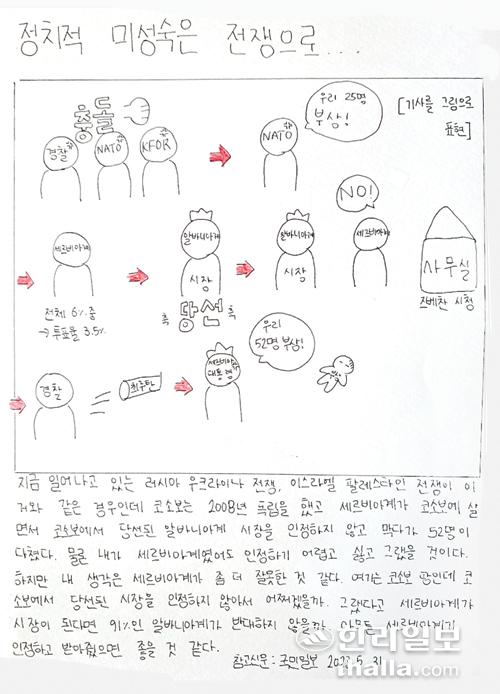 정치적 미성숙은 전쟁으로...
충돌
경찰 NATO KFOR
NATO
우리 25명
부상!
[기사를 그림으로
표현]
세르비아계
전체 6% 중
→ 투표율 3.5%
알바니아계
시장
축 당선 축
알바니아계
시장
NO!
세르비아계
사무실
즈베찬 시청
경찰
최루탄
세르비아
대통령
우리
52명 부상!
지금 일어나고 있는 러시아 우크라이나 전쟁, 이스라엘 팔레스타인 전쟁이 이
거와 같은 경우인데 코소보는 2008년 독립을 했고 세르비아계가 코소보에 살
면서 코소보에서 당선된 알바니아계 시장을 인정하지 않고 막다가 52명이
다쳤다. 물론 내가 세르비아계였어도 인정하기 어렵고 싫고 그랬을 것이다.
하지만 내 생각은 세르비아계가 좀 더 잘못한 것 같다. 여기는 코소보 땅인데 코
소보에서 당선된 시장을 인정하지 않아서 어쩌겠을까. 그렇다고 세르비아계가
시장이 된다면 91%인 알바니아계가 반대하지 않을까. 아무튼 세르비아계가
인정하고 받아줬으면 좋을 것 같다.
참고신문 : 국민일보 5. 31
한라일보
ihalla.com